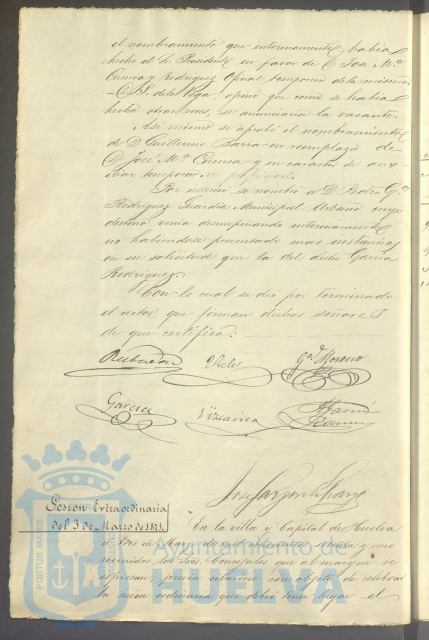 el nombramiento que interinamente había
hecho el Sr. Presidente en favor de D. José Mª
Cuenca y Rodriguez Oficial temporero de la misma
D. S. de la Vega, opinó que como se había
hecho otras veces, se anunciara la vacante.
Asi mismo se aprobó el nombramiento
de D. Guillermo Barra en reemplazo de
D. José Mª Cuenca y en caracter de aux-
iliar temporero
Por ultimo se nombró a D. Pedro Gª
Rodriguez Guardia Municipal Urbano cuyo
destino venia desempeñando interinamente
no habiendose presentado mas instancias
en su solicitud que la del dicho Garcia
Rodriguez.
Con lo cual se dió por terminado
el acto, que firman dichos señores
de que certifico:
Gª Moreno
Garcia
José Garzon
Sesion Extraordinaria
del 3 de Marzo de 1871.
En la villa y Capital de Huelva
á tres de Marzo de mil ochocientos setenta y uno
reunidos los Sres. Concejales que al margen se
espresan, previa citacion con objeto de celebrar
la sesion ordinaria que debió tener lugar el
PORTUS MARIS
Ayuntamiento de
HUELVA